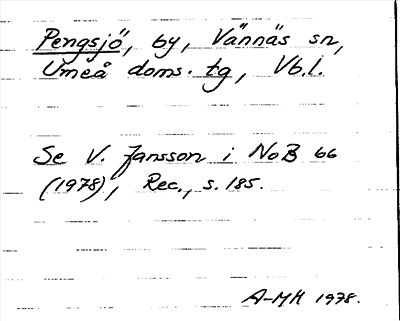 Pengsjö, by, Vännäs sn,
Umeå doms. tg, Vb.l.
Se V. Jansson i NoB 66
(1978), Rec., s. 185.
A-MH 1978.